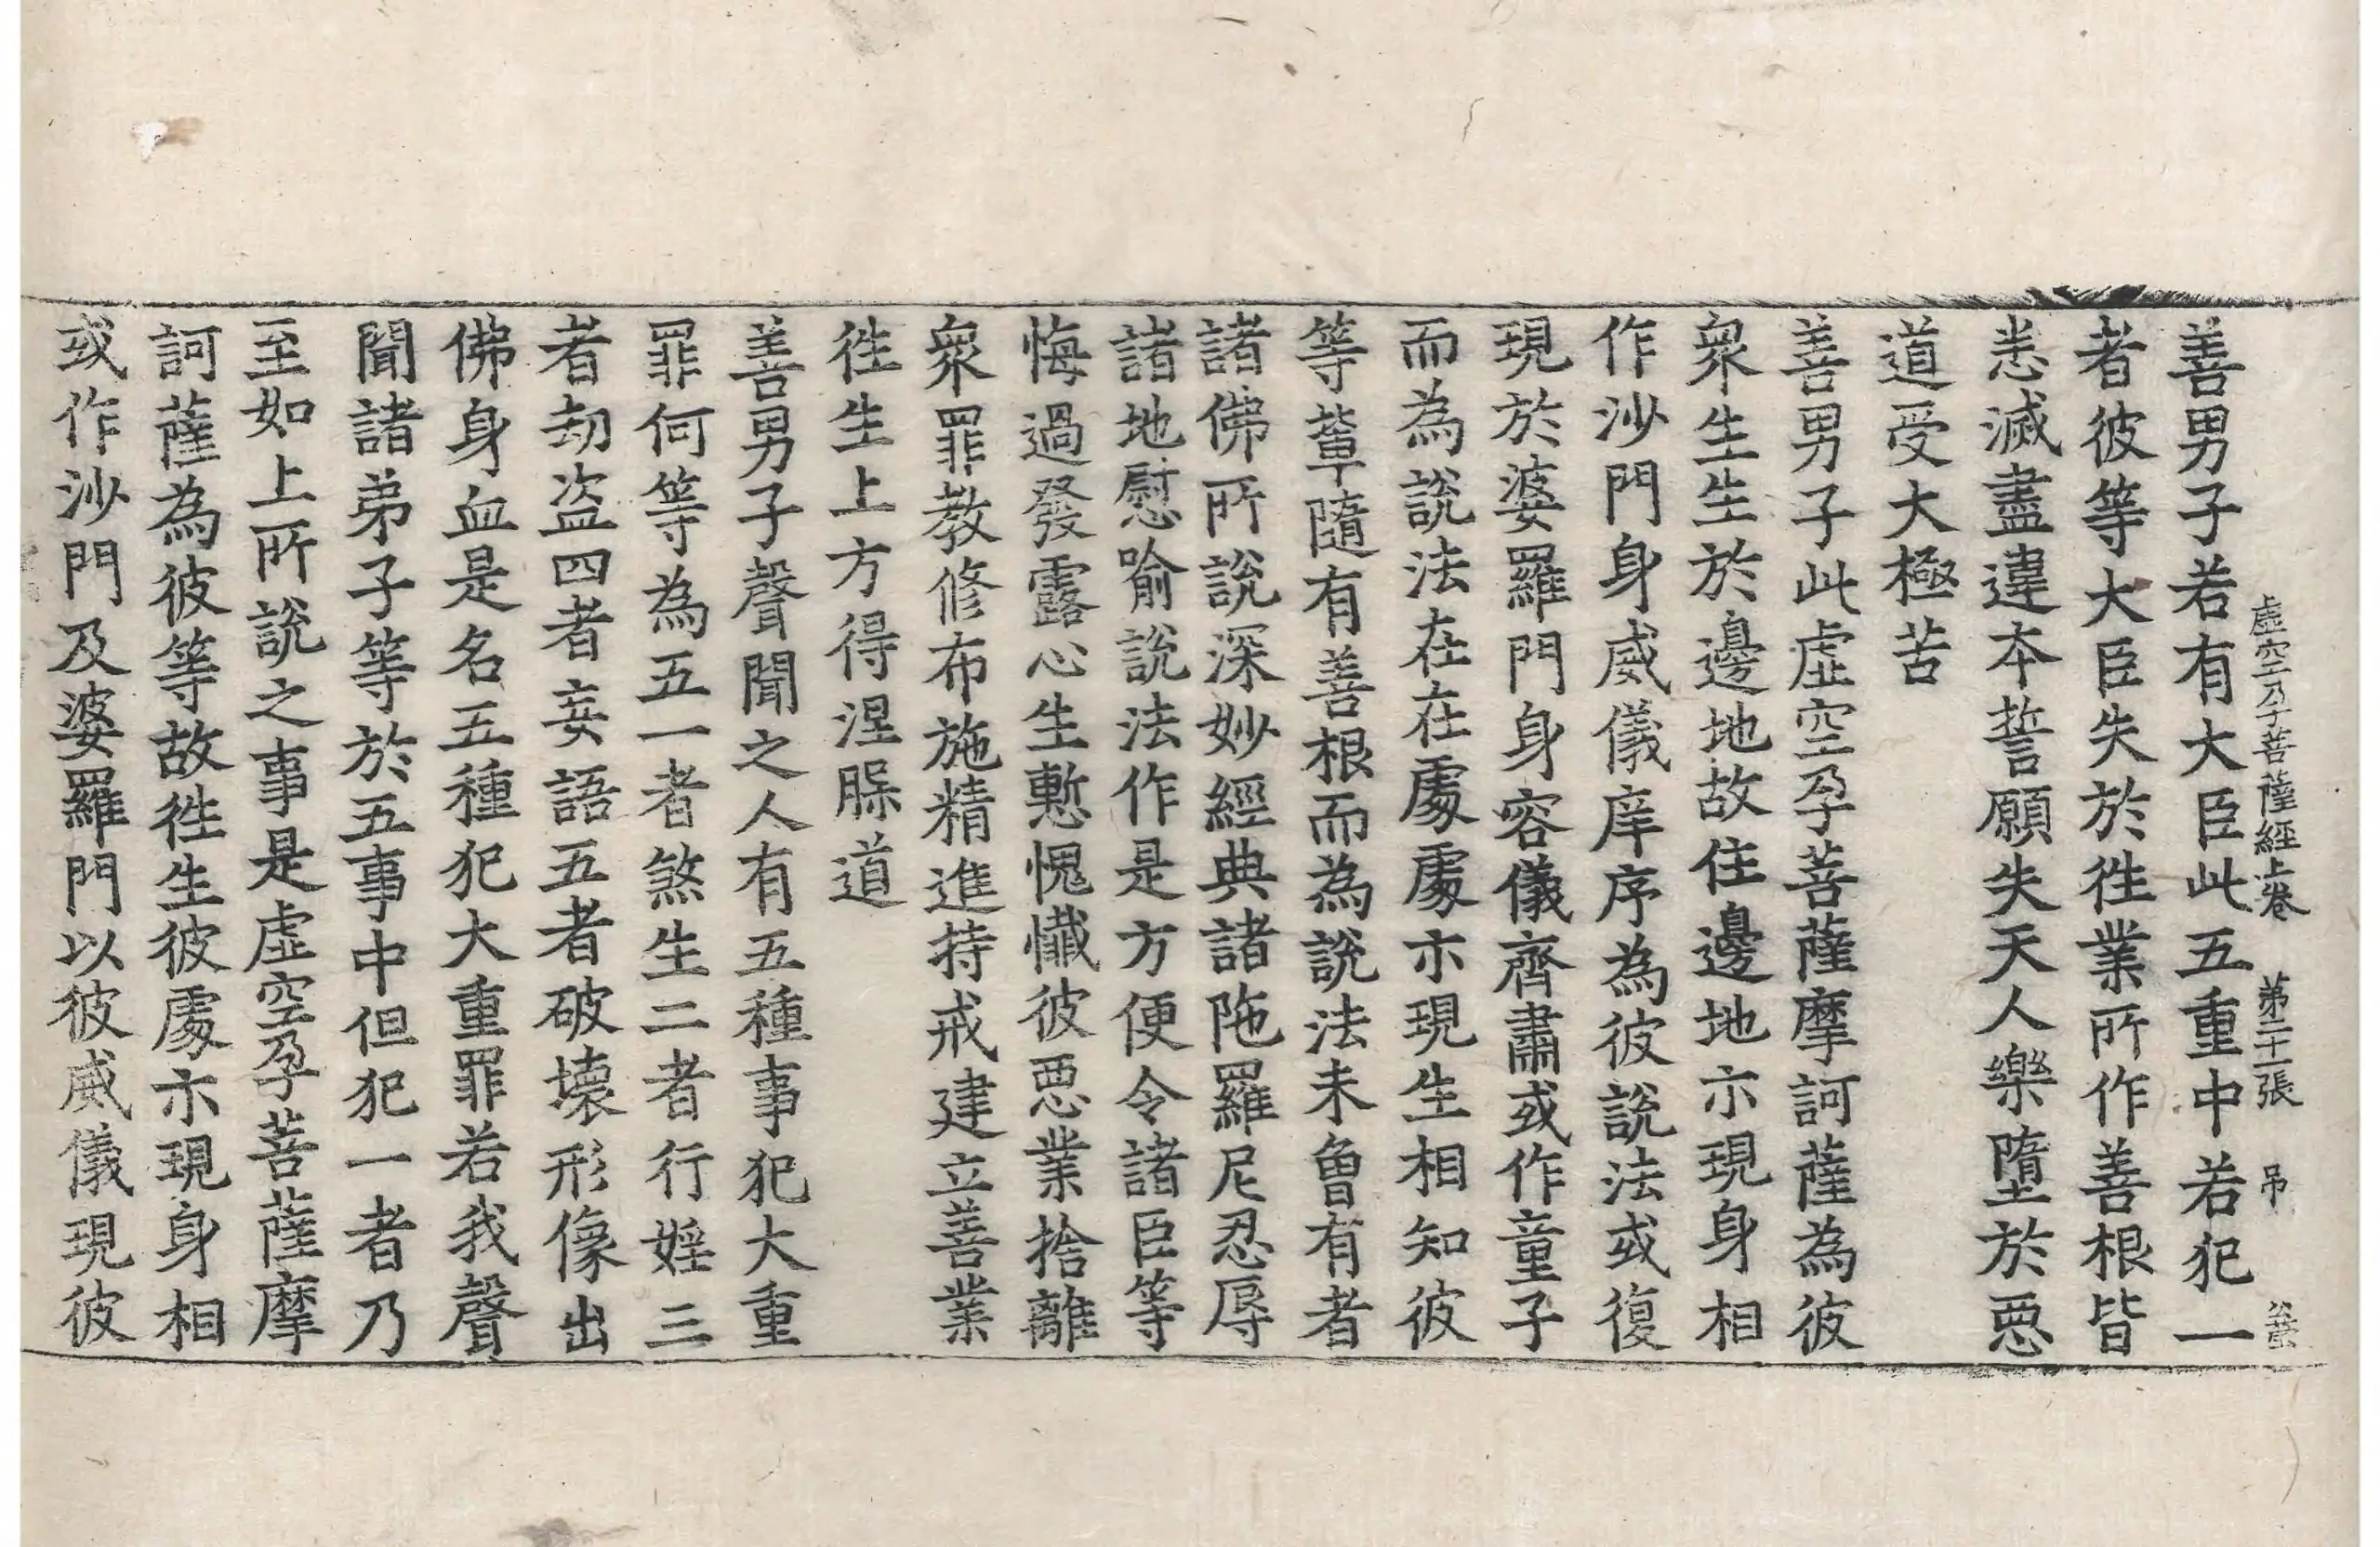 虛空孕菩薩經上卷 第二十一張 吊
善男子若有大臣此五重中若犯一
者彼等大臣失於徃業所作善根皆
悉滅盡違本誓願失天人樂墮於惡
道受大極苦
善男子此虛空孕菩薩摩訶薩為彼
衆生生於邊地故住邊地示現身相
作沙門身威儀庠序為彼說法或復
現於婆羅門身容儀齊肅或作童子
而為說法在在處處示現生相知彼
等輩隨有善根而為說法未曾有者
諸佛所說深妙經典諸陁羅尼忍辱
諸地慰喻說法作是方便令諸臣等
悔過發露心生慙愧懺彼惡業捨離
衆罪教修布施精進持戒建立善業
徃生上方得涅槃道
善男子聲聞之人有五種事犯大重
罪何等為五一者煞生二者行婬三
者劫盗四者妄語五者破壞形像出
佛身血是名五種犯大重罪若我聲
聞諸弟子等於五事中但犯一者乃
至如上所說之事是虛空孕菩薩摩
訶薩為彼等故徃生彼處示現身相
或作沙門及婆羅門以彼威儀現彼